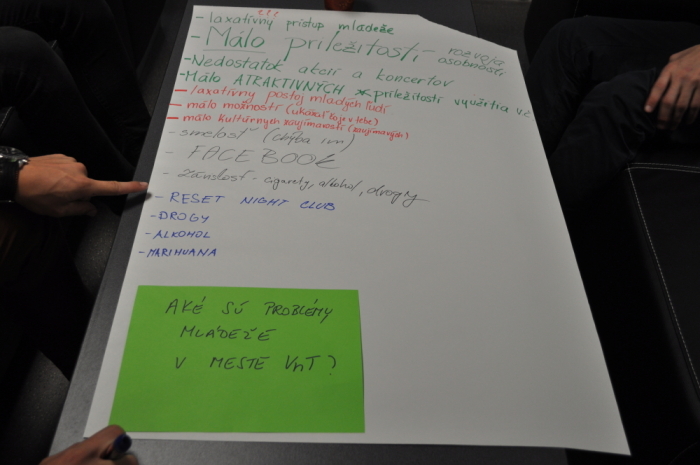 ???
- laxatívny prístup mladeže
- Málo príležitostí - rozvoja osobnosti
- Nedostatok akcií a koncertov
- Málo ATRAKTIVNÝCH príležitostí využitia vč
- laxatívny postoj mladých ľudí
- málo možností (ukázať čo je v tebe)
- málo kultúrnych zaujímavostí (zaujímavých)
- smelosť (chýba im)
- FACEBOOK
- Závislosť - cigarety, alkohol, drogy
- RESET NIGHT CLUB
- DROGY
- ALKOHOL
- MARIHUANA
AKÉ SÚ PROBLÉMY
MLÁDEŽE
V MESTE VnT?